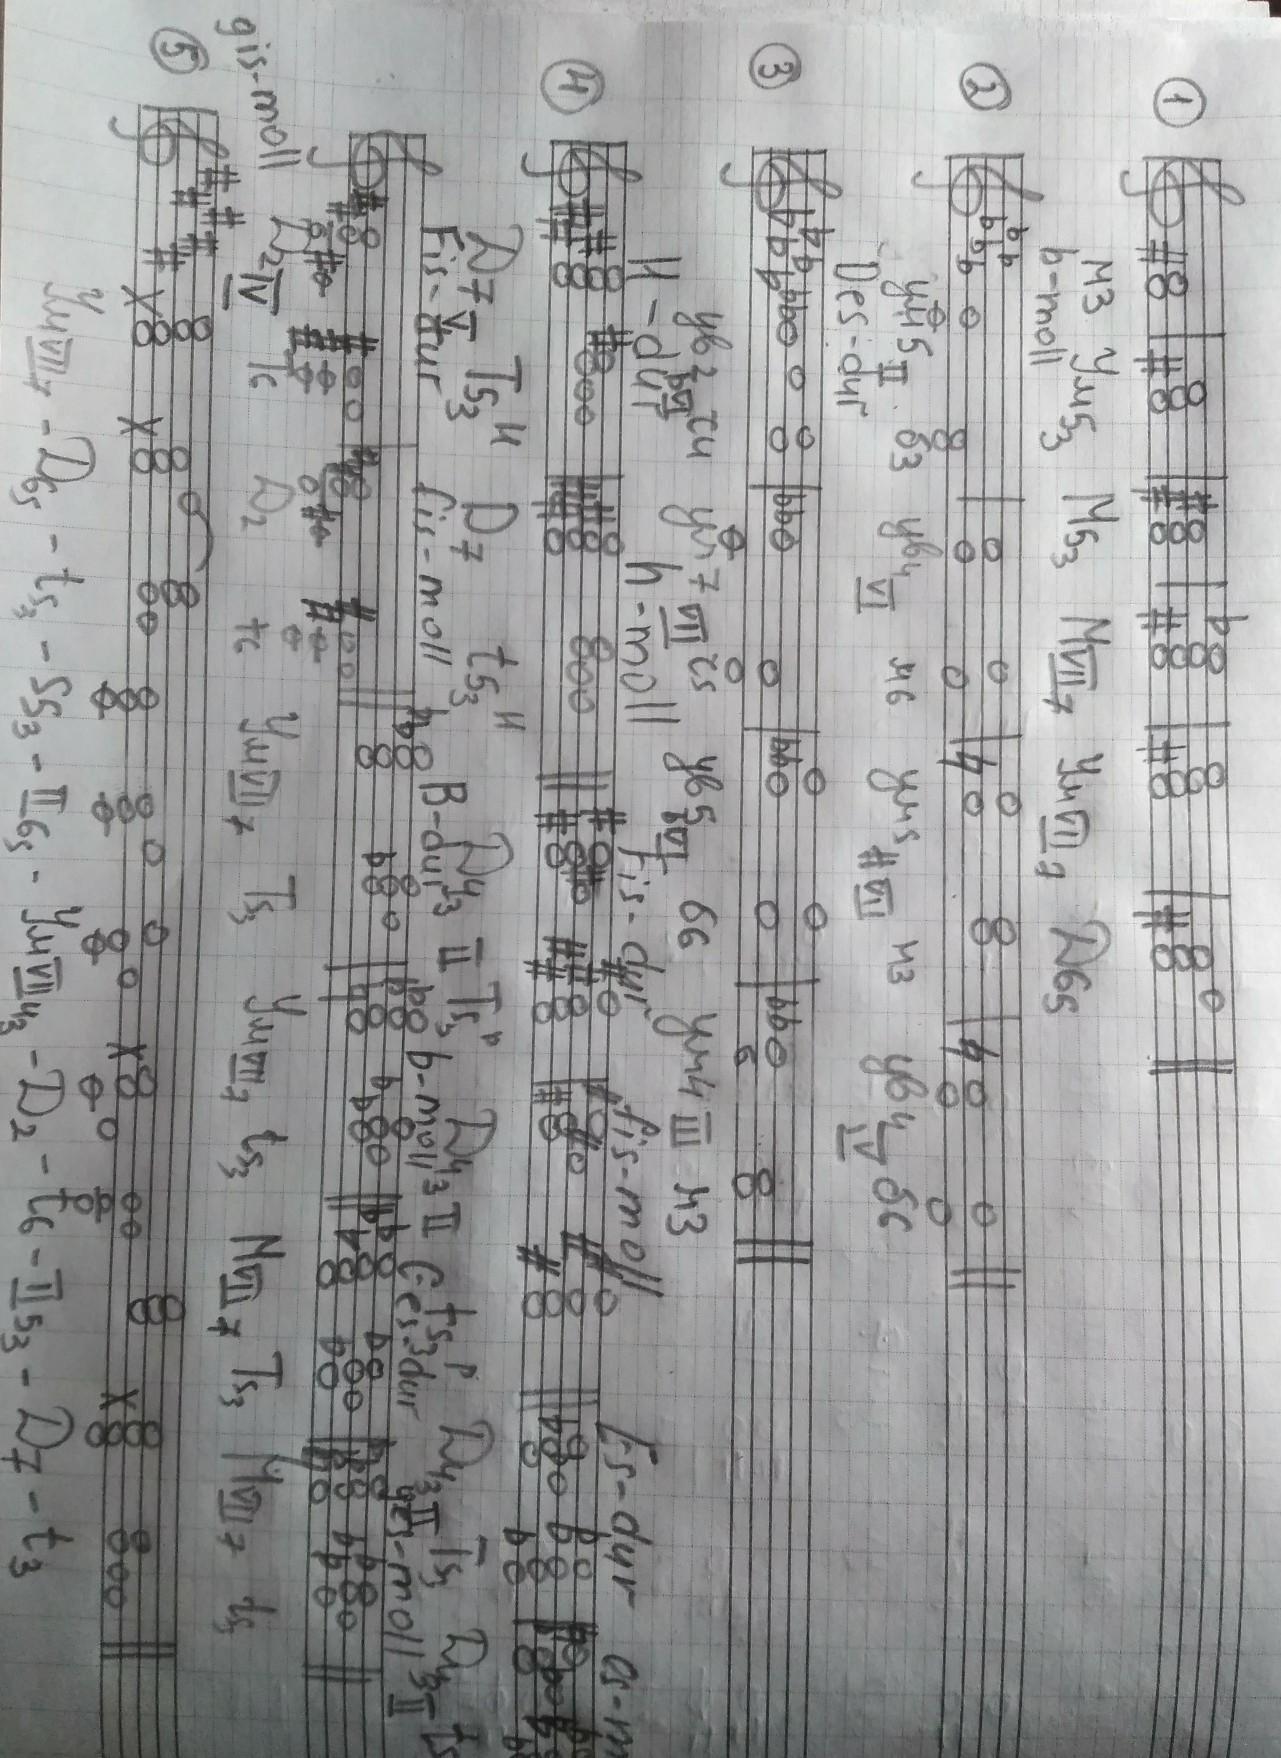 1
м3 Ум5/3 М5/3 МVII7 УмVII7 D65
2
b-moll
ум5 II б3 ув4 VI м6 ум5 #VII м3 ув4 IV б6
3
Des-dur
ув2 bVI ч4 ум7 VII ч5 ув5 bVI б6 ум4 III м3
4
H-dur h-moll Fis-dur fis-moll Es-dur
D7 V T5/3 н D7 t5/3 н D4/3 II T5/3 р D4/3 II t5/3 р D4/3 II T5/3 D4/3 II
Fis-dur fis-moll B-dur b-moll Ges-dur ges-moll
D2 IV T6 D2 t6 УмVII7 T5/3 УмVII7 t5/3 МVII7 T5/3 МVII7 t5/3
5
gis-moll
УмVII7 - D65 - t5/3 - S5/3 - II65 - УмVII4/3 - D2 - t6 - II5/3 - D7 - t3